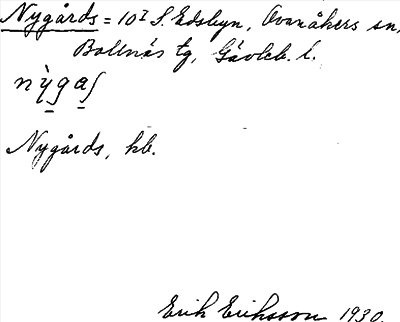 Nygårds = 10I S. Edsbyn, Ovanåkers sn,
Bollnäs tg, Gävleb. l.
nỳgaʃ
Nygårds, kb.
Erik Eriksson 1930.